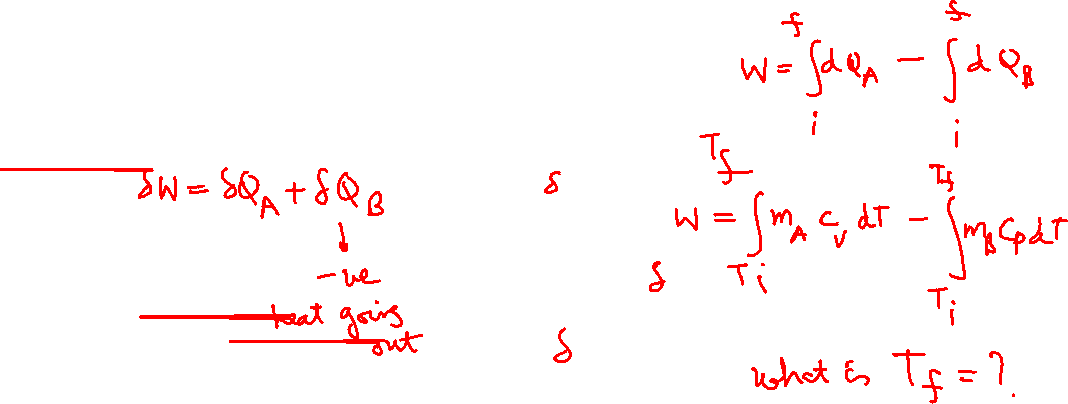 δW = δQ_A + δQ_B
↓
-ve
heat going
out
δ
δ
δ
W = ∫_i^f dQ_A - ∫_i^f dQ_B
W = ∫_{Ti}^{Tf} m_A C_v dT - ∫_{Ti}^{Tf} m_B C_P dT
what is T_f = ?